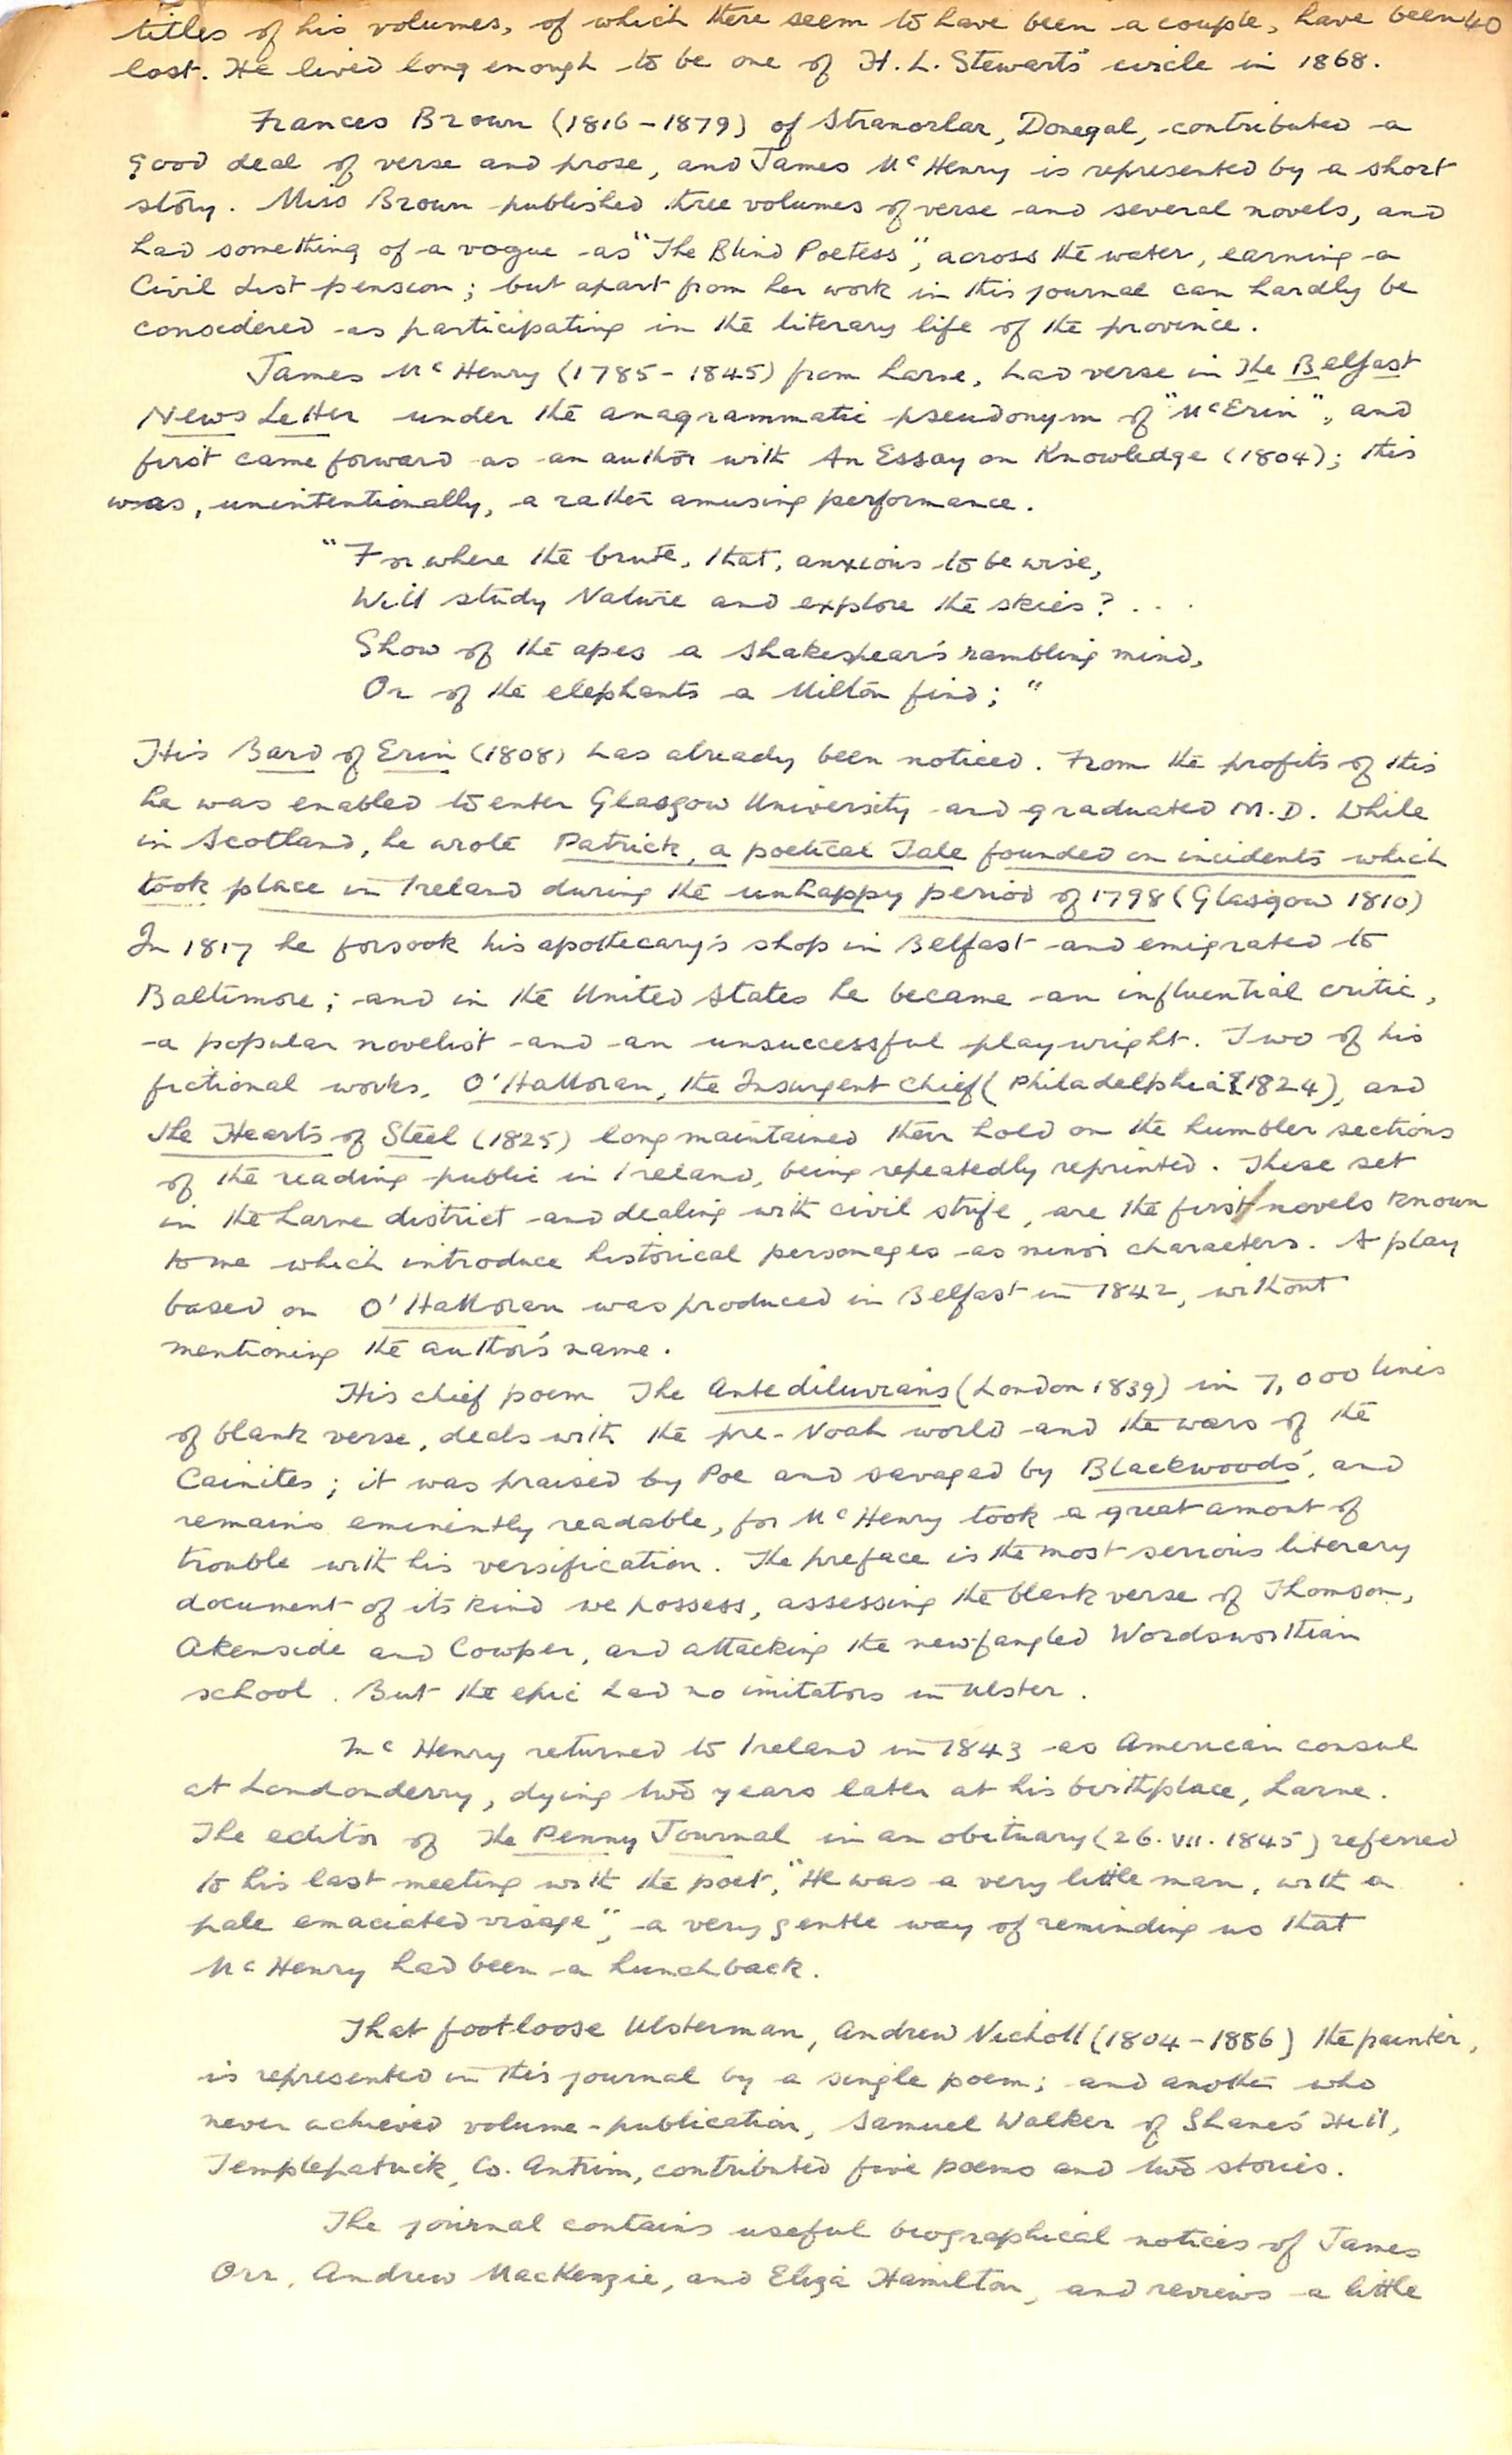 titles of his volumes, of which there seem to have been a couple, have been 40
lost. He lived long enough to be one of H. L. Stewart's circle in 1868.
Frances Brown (1816-1879) of Stranorlar, Donegal, contributed a
good deal of verse and prose, and James McHenry is represented by a short
story. Miss Brown published three volumes of verse and several novels, and
had something of a vogue as "The Blind Poetess", across the water, earning a
Civil List pension; but apart from her work in this journal can hardly be
considered as participating in the literary life of the province.
James McHenry (1785-1845) from Larne, had verse in The Belfast
News Letter under the anagrammatic pseudonym of "McErin", and
first came forward as an author with An Essay on Knowledge (1804); this
was, unintentionally, a rather amusing performance.
"For where the brute, that, anxious to be wise,
Will study Nature and explore the skies? . . .
Show of the apes a Shakespear's rambling mind,
Or of the elephants a Milton find;"
His Bard of Erin (1808) has already been noticed. From the profits of this
he was enabled to enter Glasgow University and graduated M.D. While
in Scotland, he wrote Patrick, a poetical Tale founded on incidents which
took place in Ireland during the unhappy period of 1798 (Glasgow 1810)
In 1817 he forsook his apothecary's shop in Belfast and emigrated to
Baltimore; and in the United States he became an influential critic,
a popular novelist and an unsuccessful playwright. Two of his
fictional works, O'Halloran, the Insurgent Chief (Philadelphia 1824), and
The Hearts of Steel (1825) long maintained their hold on the humbler sections
of the reading public in Ireland, being repeatedly reprinted. These set
in the Larne district and dealing with civil strife, are the first novels known
to me which introduce historical personages as minor characters. A play
based on O'Halloran was produced in Belfast in 1842, without
mentioning the author's name.
His chief poem The Antediluvians (London 1839) in 7,000 lines
of blank verse, deals with the pre-Noah world and the wars of the
Cainites; it was praised by Poe and savaged by Blackwoods', and
remains eminently readable, for McHenry took a great amont of
trouble with his versification. The preface is the most serious literary
document of its kind we possess, assessing the blank verse of Thomson,
Akenside and Cowper, and attacking the newfangled Wordsworthian
school. But the epic had no imitators in Ulster.
McHenry returned to Ireland in 1843 as American consul
at Londonderry, dying two years later at his birthplace, Larne.
The editor of The Penny Journal in an obituary (26.VII.1845) referred
to his last meeting with the poet, "He was a very little man, with a
pale emaciated visage", a very gentle way of reminding us that
McHenry had been a hunchback.
That footloose Ulsterman, Andrew Nicholl (1804-1886) the painter,
is represented in this journal by a single poem; and another who
never achieved volume-publication, Samuel Walker of Shane's Hill,
Templepatrick, Co. Antrim, contributed five poems and two stories.
The journal contains useful biographical notices of James
Orr, Andrew MacKenzie, and Eliza Hamilton, and reviews a little